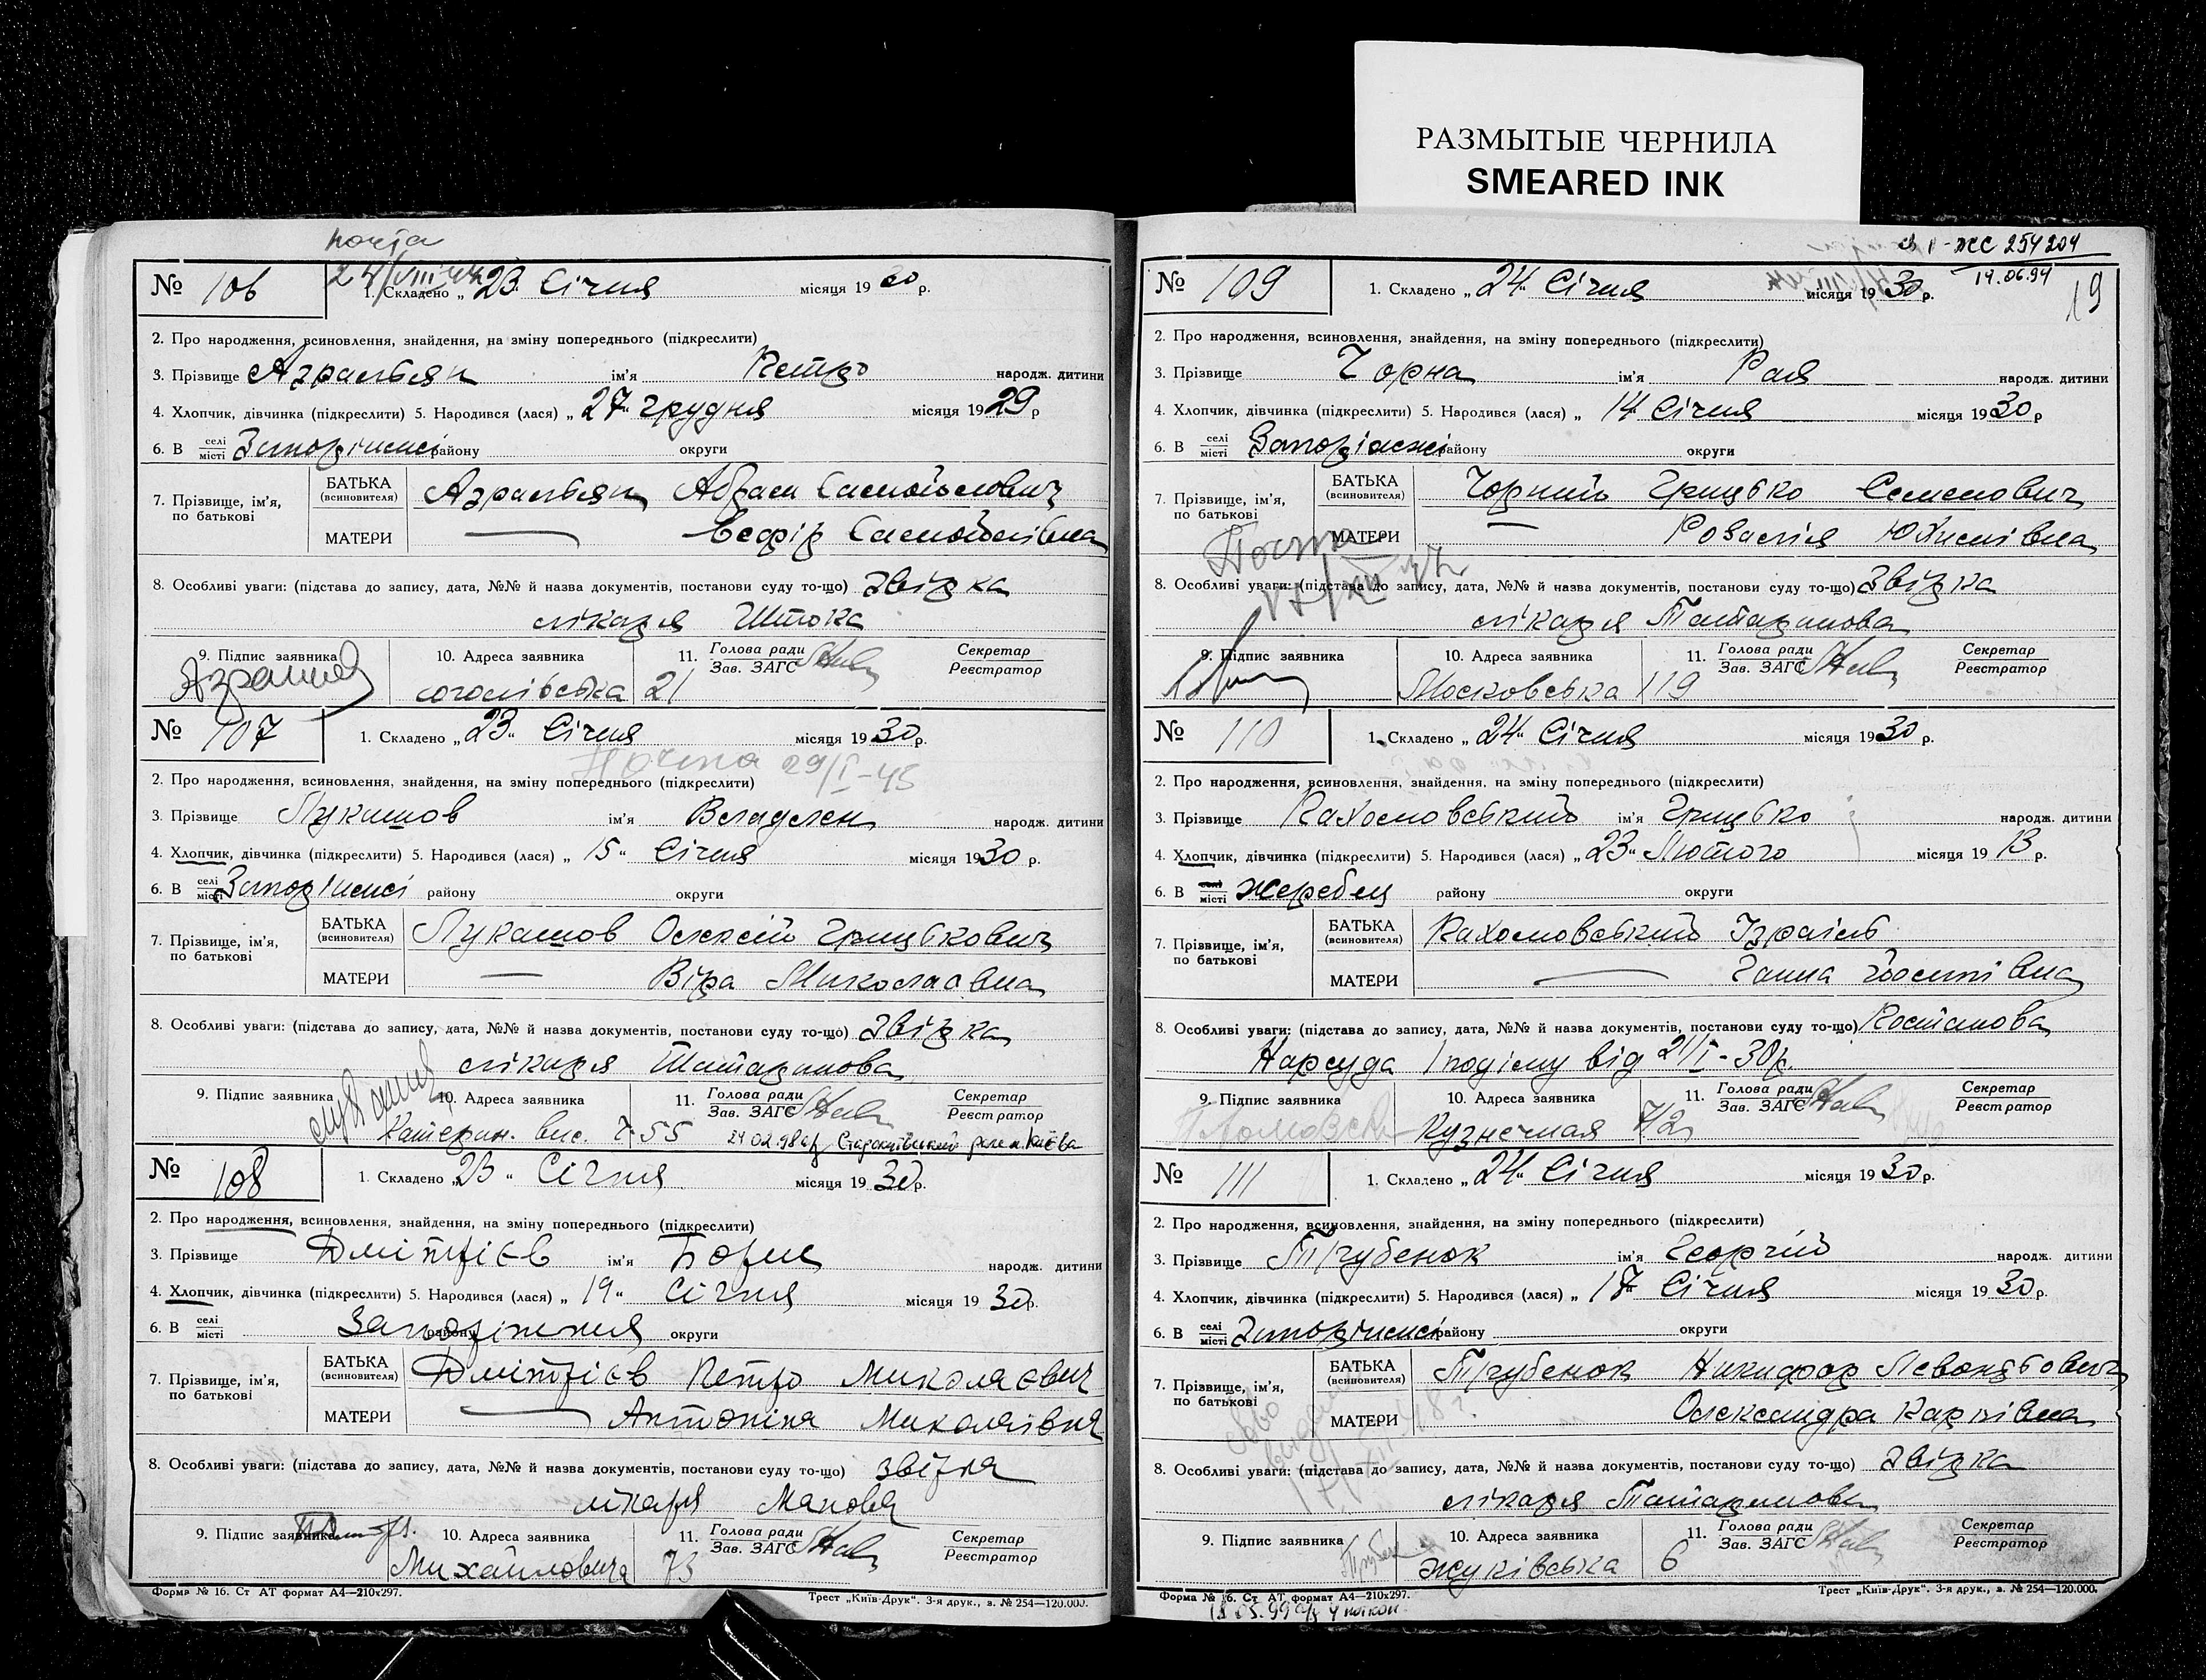 РАЗМЫТЫЕ ЧЕРНИЛА
SMEARED INK
почта
№ 106
1. Складено „23“ Січня місяця 1930 р.
2. Про народження, всиновлення, знайдення, на зміну попереднього (підкреслити)
3. Прізвище ім'я Петро народж. дитини
4. Хлопчик, дівчинка (підкреслити) 5. Народився (лася) „27“ грудня місяця 1929 р
6. В селі місті Запоріжжі району округи
7. Прізвище, ім'я, по батькові
БАТЬКА (всиновителя) Абрам Самойлович
МАТЕРИ — Есфір Самойлівна
8. Особливі уваги: (підстава до запису, дата, №№ й назва документів, постанови суду то-що) Звірка
лікаря Штока
9. Підпис заявника 10. Адреса заявника 11. Голова ради Зав. ЗАГС Секретар Реєстратор
21
№ 107
1. Складено „23“ Січня місяця 1930 р.
Почта 29/I-45
2. Про народження, всиновлення, знайдення, на зміну попереднього (підкреслити)
3. Прізвище Лукашов ім'я Владлен народж. дитини
4. Хлопчик, дівчинка (підкреслити) 5. Народився (лася) „15“ Січня місяця 1930 р.
6. В селі місті Запоріжжі району округи
7. Прізвище, ім'я, по батькові
БАТЬКА (всиновителя) Лукашов Олексій Грицькович
МАТЕРИ — Віра Миколаєвна
8. Особливі уваги: (підстава до запису, дата, №№ й назва документів, постанови суду то-що) Звірка
лікаря Татаринова
9. Підпис заявника 10. Адреса заявника 11. Голова ради Зав. ЗАГС Секретар Реєстратор
Катерин. вис. 7-55
24.02.98
№ 108
1. Складено „23“ Січня місяця 1930 р.
2. Про народження, всиновлення, знайдення, на зміну попереднього (підкреслити)
3. Прізвище Дмітрієв ім'я Борис народж. дитини
4. Хлопчик, дівчинка (підкреслити) 5. Народився (лася) „19“ Січня місяця 1930 р.
6. В селі місті Запоріжжя району округи
7. Прізвище, ім'я, по батькові
БАТЬКА (всиновителя) Дмітрієв Петро Миколаєвич
МАТЕРИ — Антоніна Миколаївна
8. Особливі уваги: (підстава до запису, дата, №№ й назва документів, постанови суду то-що) звірка
лікаря
9. Підпис заявника 10. Адреса заявника 11. Голова ради Зав. ЗАГС Секретар Реєстратор
Михайловича 73
Форма № 16. Ст АТ формат А4—210х297.
Трест „Київ-Друк“. 3-я друк., з. № 254—120.000.
ЖС 254204
14.06.94
19
№ 109
1. Складено „24“ Січня місяця 1930 р.
2. Про народження, всиновлення, знайдення, на зміну попереднього (підкреслити)
3. Прізвище Чорна ім'я Рая народж. дитини
4. Хлопчик, дівчинка (підкреслити) 5. Народився (лася) „14“ Січня місяця 1930 р
6. В селі місті Запоріжжі району округи
7. Прізвище, ім'я, по батькові
БАТЬКА (всиновителя) Чорний Грицько Семенович
МАТЕРИ — Розалія Юхимівна
8. Особливі уваги: (підстава до запису, дата, №№ й назва документів, постанови суду то-що) Звірка
лікаря Татаринова
9. Підпис заявника 10. Адреса заявника 11. Голова ради Зав. ЗАГС Секретар Реєстратор
Московська 119
№ 110
1. Складено „24“ Січня місяця 1930 р.
2. Про народження, всиновлення, знайдення, на зміну попереднього (підкреслити)
3. Прізвище Кахомовський ім'я Грицько народж. дитини
4. Хлопчик, дівчинка (підкреслити) 5. Народився (лася) „23“ Лютого місяця 1913 р.
6. В селі місті Жеребец району округи
7. Прізвище, ім'я, по батькові
БАТЬКА (всиновителя) Кахомовський Ізраїль
МАТЕРИ — Ганна Йосипівна
8. Особливі уваги: (підстава до запису, дата, №№ й назва документів, постанови суду то-що) Постанова
Нарсуда 1 поділу від 21/I-30р.
9. Підпис заявника 10. Адреса заявника 11. Голова ради Зав. ЗАГС Секретар Реєстратор
Кузнечная
№ 111
1. Складено „24“ Січня місяця 1930 р.
2. Про народження, всиновлення, знайдення, на зміну попереднього (підкреслити)
3. Прізвище Трубенок ім'я Георгій народж. дитини
4. Хлопчик, дівчинка (підкреслити) 5. Народився (лася) „17“ Січня місяця 1930 р.
6. В селі місті Запоріжжі району округи
7. Прізвище, ім'я, по батькові
БАТЬКА (всиновителя) Трубенок Никифор Левондьович
МАТЕРИ Олександра Карпівна
8. Особливі уваги: (підстава до запису, дата, №№ й назва документів, постанови суду то-що) Звірка
лікаря Татаринова
9. Підпис заявника 10. Адреса заявника 11. Голова ради Зав. ЗАГС Секретар Реєстратор
Жуківська 6
Форма № 16. Ст АТ формат А4—210х297.
Трест „Київ-Друк“. 3-я друк., з. № 254—120.000.